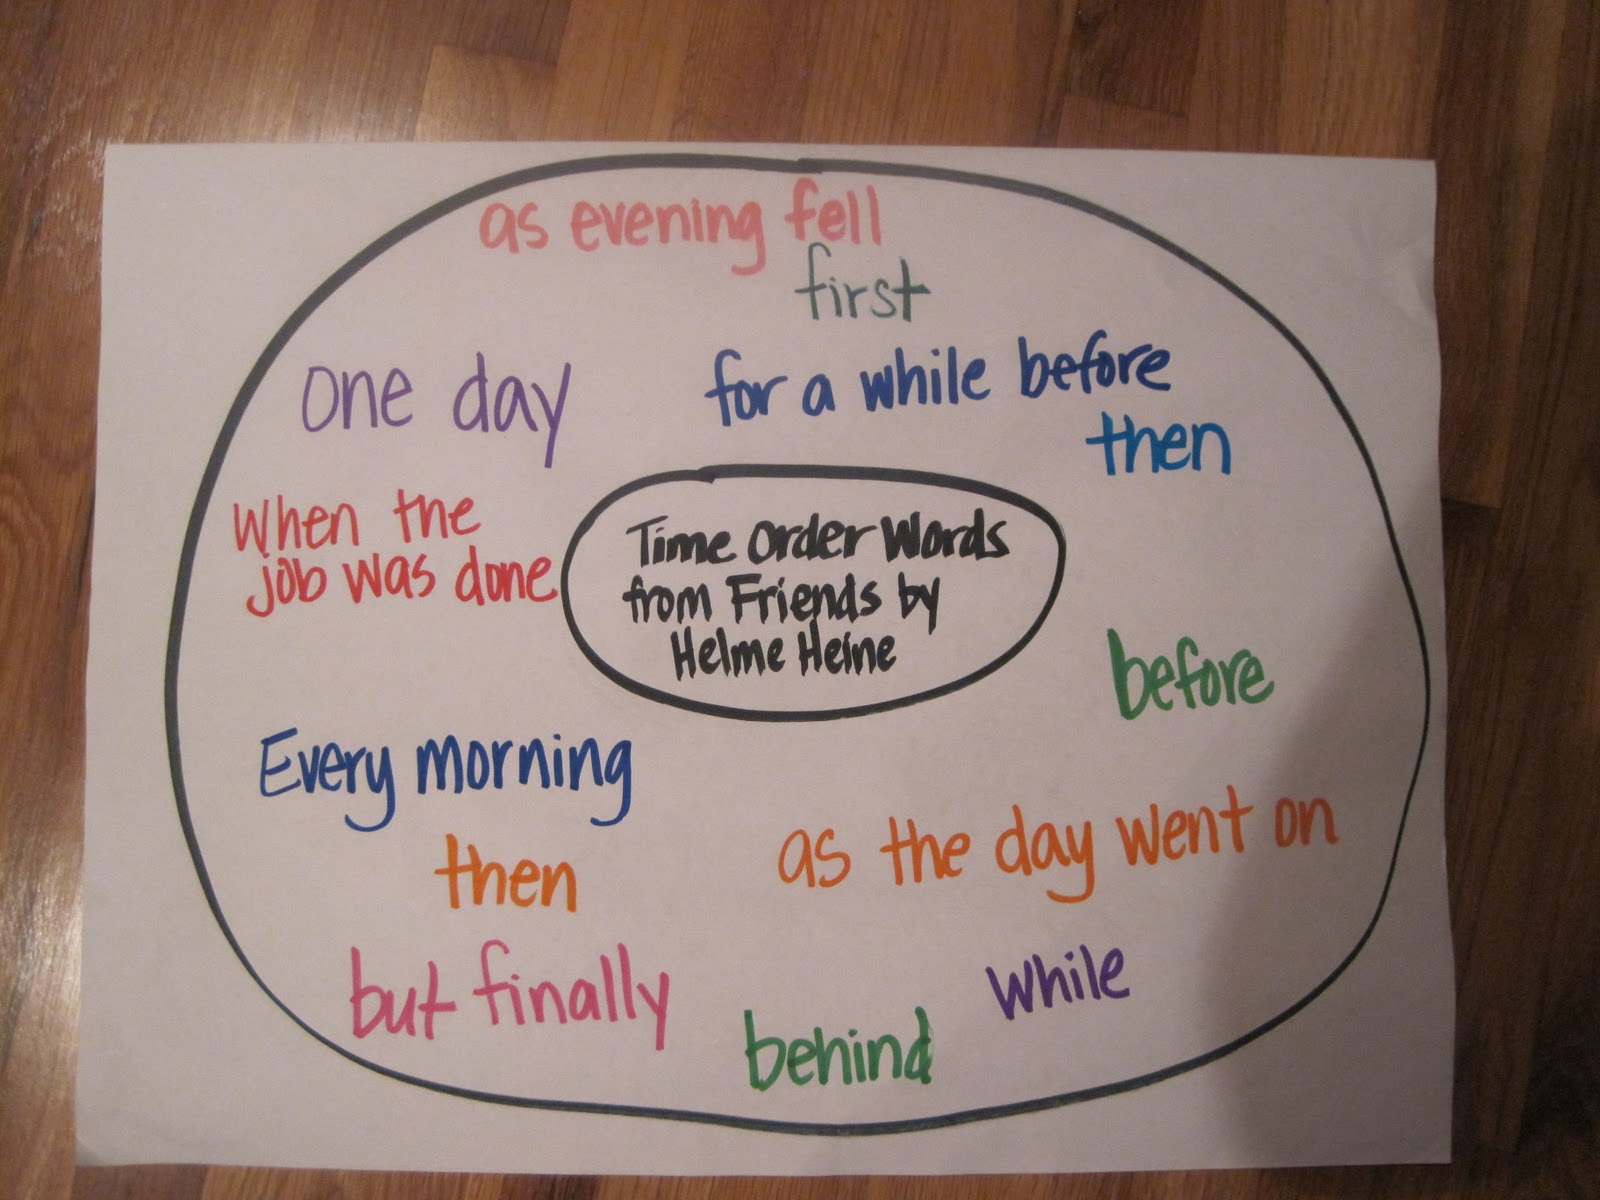 as evening fell
first
one day
for a while before
then
When the
job was done
Time Order Words
from Friends by
Helme Heine
before
Every morning
then
as the day went on
but finally
while
behind